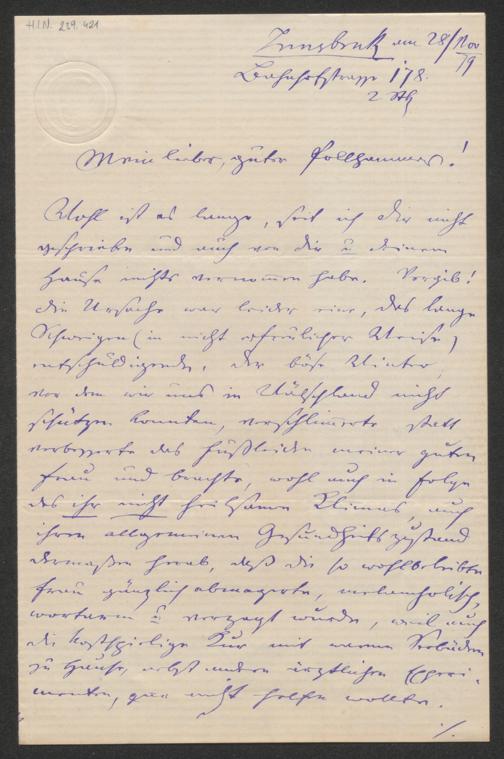 H.I.N. 229.421
Innsbruck am 28/Nov
79
Bahnhofstrasse 178.
2 Stk
Mein lieber, guter Pollhammer!
Wohl ist es lange, seit ich Dir nicht
geschrieben und auch von Dir u. deinem
Hause nichts vernommen habe. Vergib!
die Ursache war leider eine, das lange
Schweigen (in nicht erfreulicher Weise)
entschuldigende, der böse Winter,
vor dem wir uns in Wälschland nicht
schützen konnten, verschlimmerte statt
verbesserte das Fußleiden meiner guten
Frau und brachte, wohl auch in Folge
des ihr nicht heilsamen Klimas, auch
ihren allgemeinen Gesundheitszustand
dermaßen herab, daß die so wohlbeleibte
Frau gänzlich abmagerte, melancholisch,
wortarm u. verzagt wurde, weil auch
die kostspielige Kur mit warmen Seebädern
zu Hause, nebst andern ärztlichen Experi-
menten, gar nicht helfen wollte.
./.